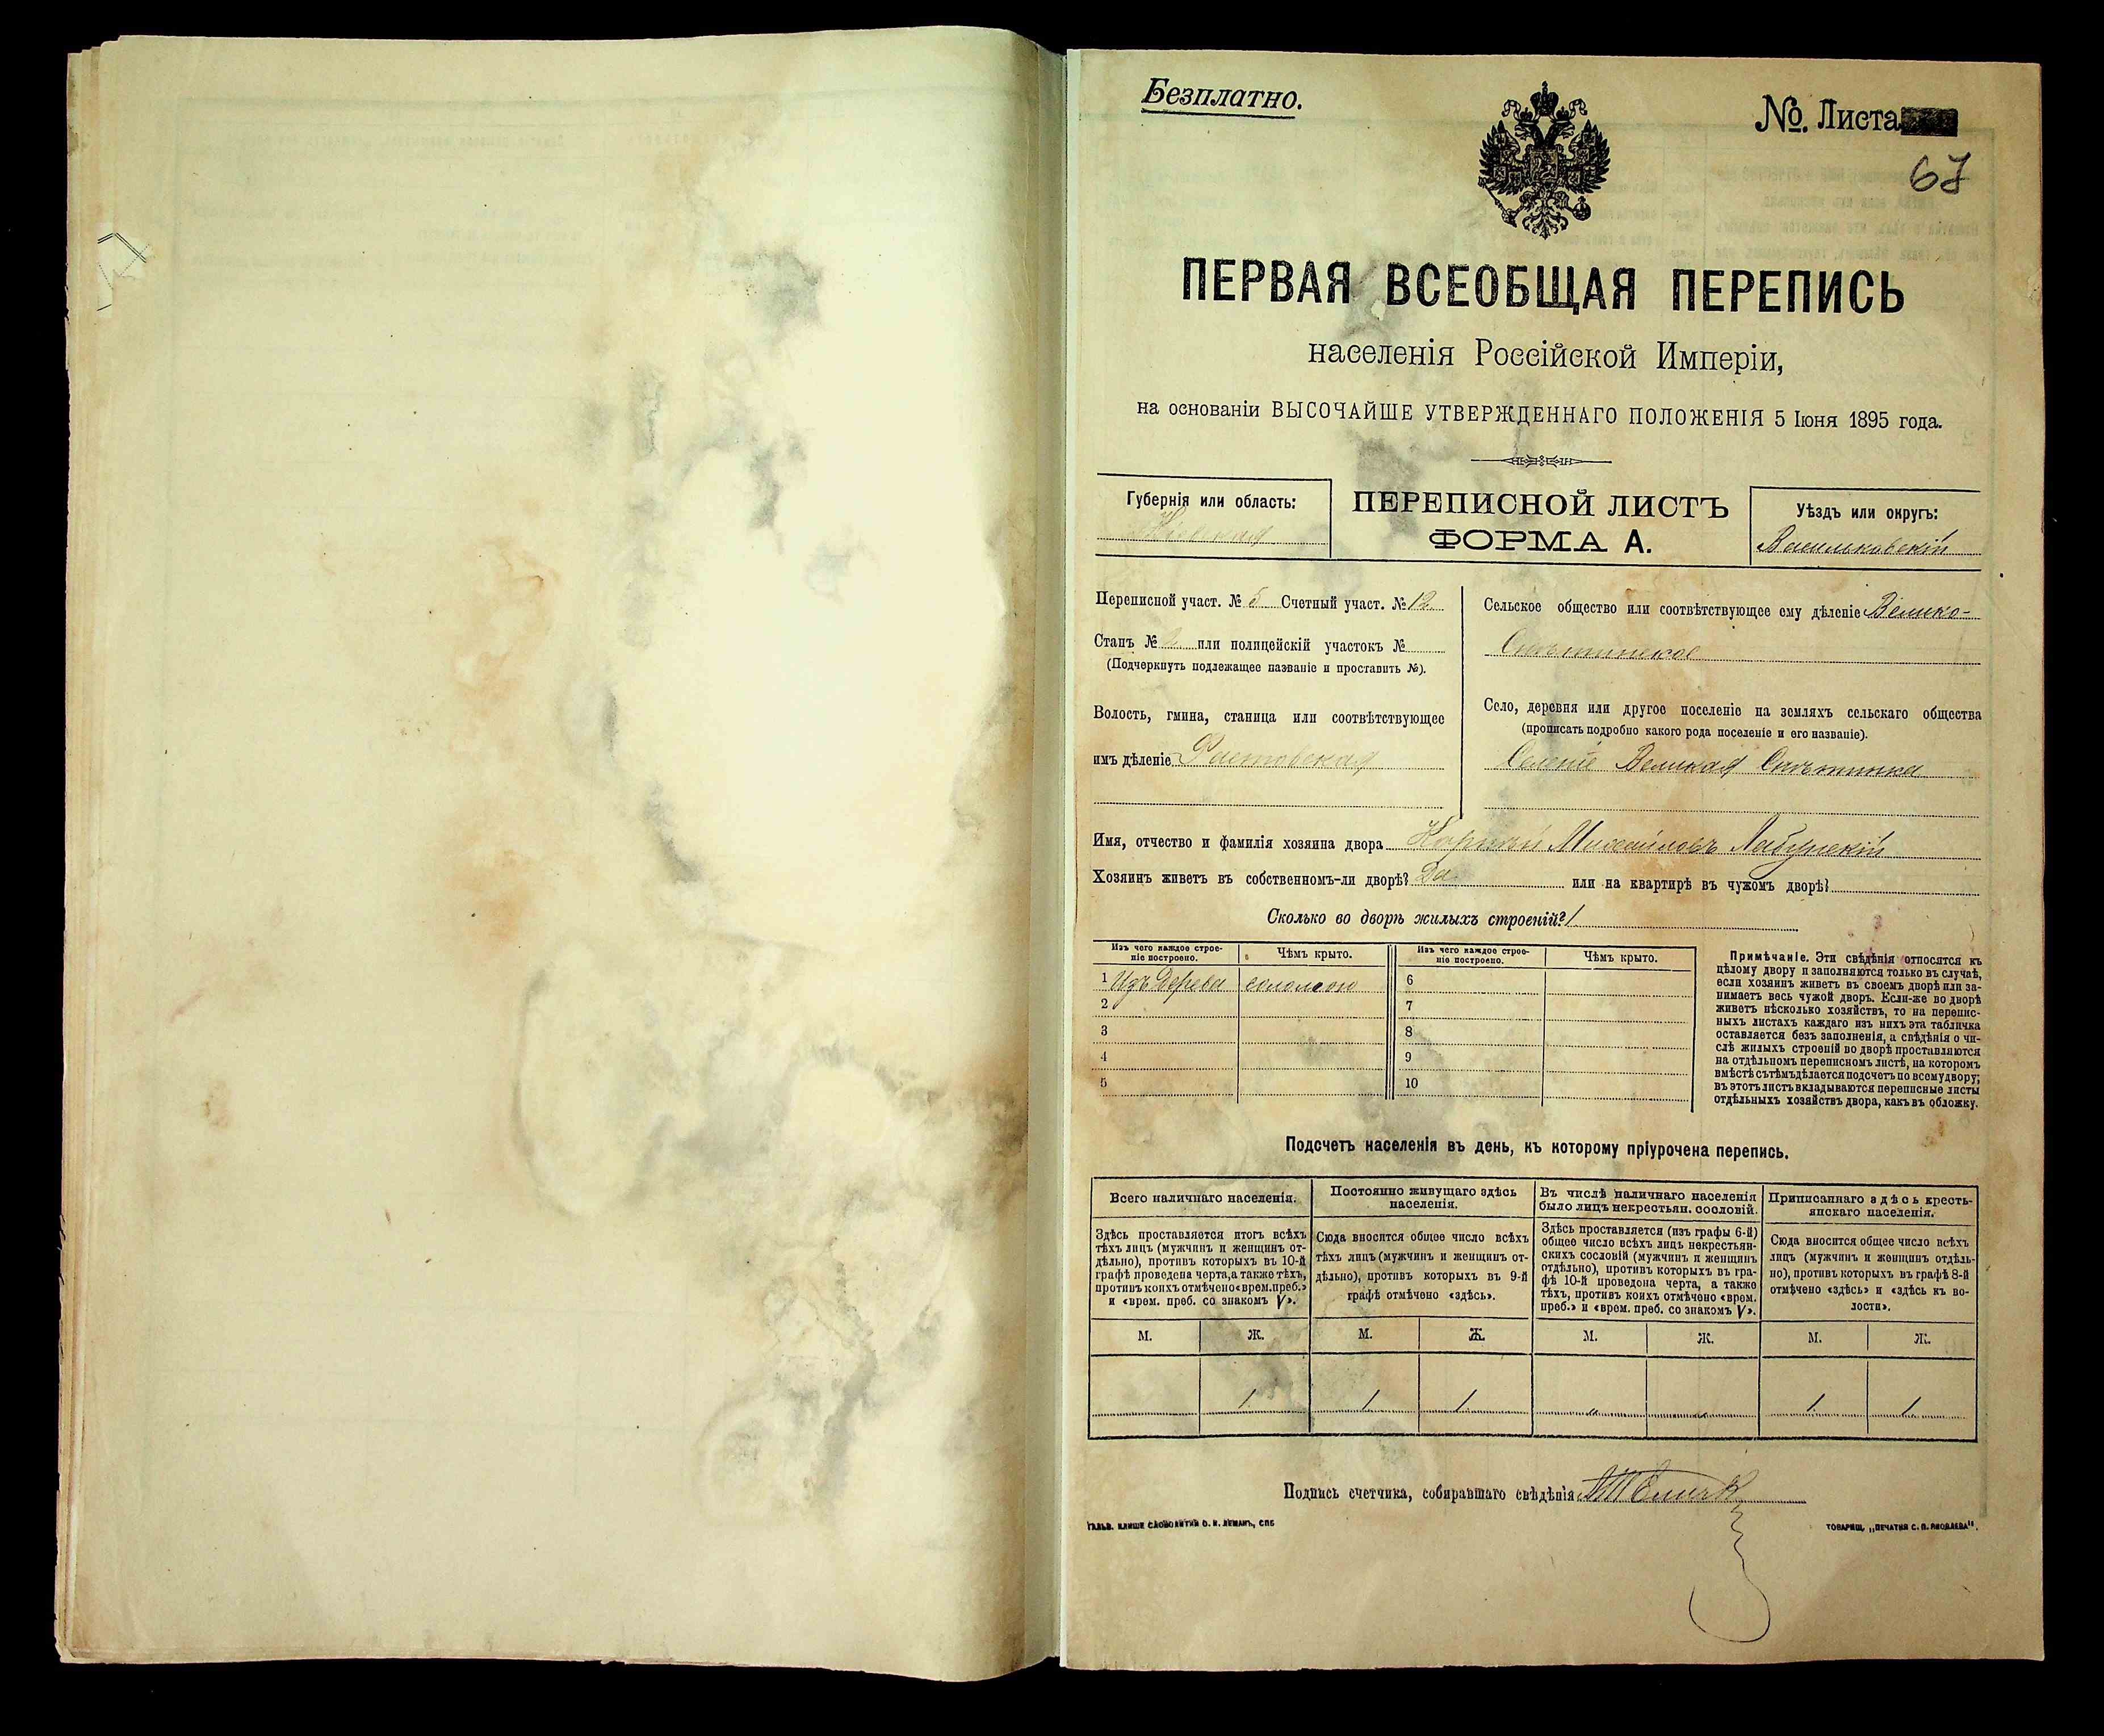 Безплатно.
№. Листа
67
ПЕРВАЯ ВСЕОБЩАЯ ПЕРЕПИСЬ
населенія Россійской Имперіи,
на основаніи ВЫСОЧАЙШЕ УТВЕРЖДЕННАГО ПОЛОЖЕНІЯ 5 Іюня 1895 года.
Губернія или область:
Кіевская
ПЕРЕПИСНОЙ ЛИСТЪ
ФОРМА А.
Уѣздъ или округъ:
Васильковскій
Переписной участ. № 5 Счетный участ. № 12
Станъ № 2 или полицейскій участокъ №
(Подчеркнуть подлежащее названіе и проставить №).
Волость, гмина, станица или соотвѣтствующее
имъ дѣленіе Фастовская
Сельское общество или соотвѣтствующее ему дѣленіе Велико-
Снѣтинское
Село, деревня или другое поселеніе на земляхъ сельскаго общества
(прописать подробно какого рода поселеніе и его названіе).
Селеніе Великая Снѣтинка
Имя, отчество и фамилія хозяина двора Михайловъ Лабунскій
Хозяинъ живетъ въ собственномъ-ли дворѣ? Да или на квартирѣ въ чужомъ дворѣ?
Сколько во дворѣ жилыхъ строеній? 1
Изъ чего каждое строе-
ніе построено.
Чѣмъ крыто.
Изъ чего каждое строе-
ніе построено.
Чѣмъ крыто.
1 Изъ дерева соломою 6
2 7
3 8
4 9
5 10
Примѣчаніе. Эти свѣдѣнія относятся къ
цѣлому двору и заполняются только въ случаѣ,
если хозяинъ живетъ въ своемъ дворѣ или за-
нимаетъ весь чужой дворъ. Если-же во дворѣ
живетъ нѣсколько хозяйствъ, то на перепис-
ныхъ листахъ каждаго изъ нихъ эта табличка
оставляется безъ заполненія, а свѣдѣнія о чи-
слѣ жилыхъ строеній во дворѣ проставляются
на отдѣльномъ переписномъ листѣ, на которомъ
вмѣстѣ съ тѣмъ дѣлается подсчетъ по всему двору;
въ этотъ листъ вкладываются переписные листы
отдѣльныхъ хозяйствъ двора, какъ въ обложку.
Подсчетъ населенія въ день, къ которому пріурочена перепись.
Всего наличнаго населенія.
Здѣсь проставляется итогъ всѣхъ
тѣхъ лицъ (мужчинъ и женщинъ от-
дѣльно), противъ которыхъ въ 10-й
графѣ проведена черта, а также тѣхъ,
противъ коихъ отмѣчено «врем. преб.»
и «врем. преб. со знакомъ V».
Постоянно живущаго здѣсь
населенія.
Сюда вносится общее число всѣхъ
тѣхъ лицъ (мужчинъ и женщинъ от-
дѣльно), противъ которыхъ въ 9-й
графѣ отмѣчено «здѣсь».
Въ числѣ наличнаго населенія
было лицъ некрестьян. сословій.
Здѣсь проставляется (изъ графы 6-й)
общее число всѣхъ лицъ некрестьян-
скихъ сословій (мужчинъ и женщинъ
отдѣльно), противъ которыхъ въ гра-
фѣ 10-й проведена черта, а также
тѣхъ, противъ коихъ отмѣчено «врем.
преб.» и «врем. преб. со знакомъ V».
Приписаннаго здѣсь кресть-
янскаго населенія.
Сюда вносится общее число всѣхъ
лицъ (мужчинъ и женщинъ отдѣль-
но), противъ которыхъ въ графѣ 8-й
отмѣчено «здѣсь» и «здѣсь къ во-
лости».
М. Ж. М. Ж. М. Ж. М. Ж.
1 1 1 " " 1 1
Подпись счетчика, собиравшаго свѣдѣнія
ГАЛЬВ. КЛИШЕ СЛОВОЛИТНИ О. И. ЛЕМАНЪ, СПБ
ТОВАРИЩ. „ПЕЧАТНЯ С. П. ЯКОВЛЕВА".